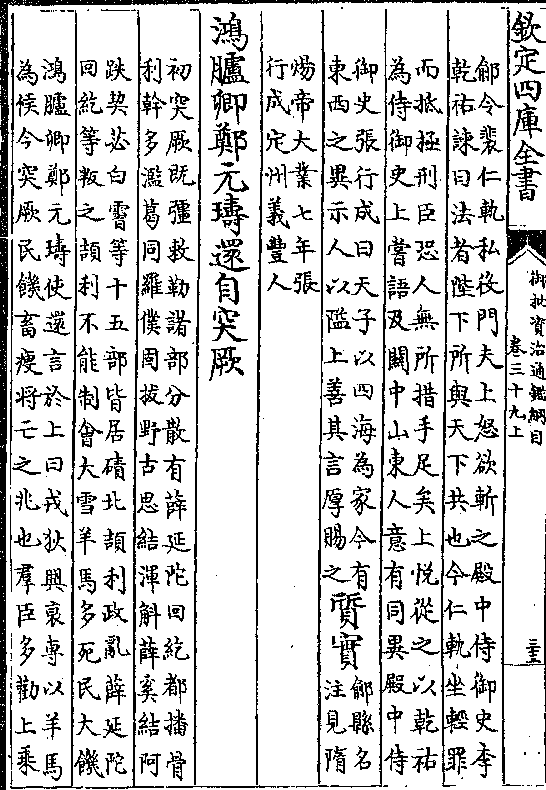 欽定四庫全書
御批資治通鑑綱目
卷三十九上
三三
鄃令裴仁軌私役門夫上怒欲斬之殿中侍御史李
乾祐諫曰法者陛下所與天下共也今仁軌坐輕罪
而抵極刑臣恐人無所措手足矣上悅從之以乾祐
為侍御史上嘗語及關中山東人意有同異殿中侍
御史張行成曰天子以四海為家今有
東西之異示人以隘上善其言厚賜之質實鄃縣名
注見隋
煬帝大業七年張
行成定州義豐人
鴻臚卿鄭元璹還自突厥
初突厥既彊敕勒諸部分散有薛延陀回紇都播骨
利幹多濫葛同羅僕固拔野古思結渾斛薛奚結阿
跌契苾白霫等十五部皆居磧北頡利政亂薛延陀
回紇等叛之頡利不能制會大雪羊馬多死民大饑
鴻臚卿鄭元璹使還言於上曰戎狄興衰專以羊馬
為候今突厥民饑畜瘦將亡之兆也羣臣多勸上乘